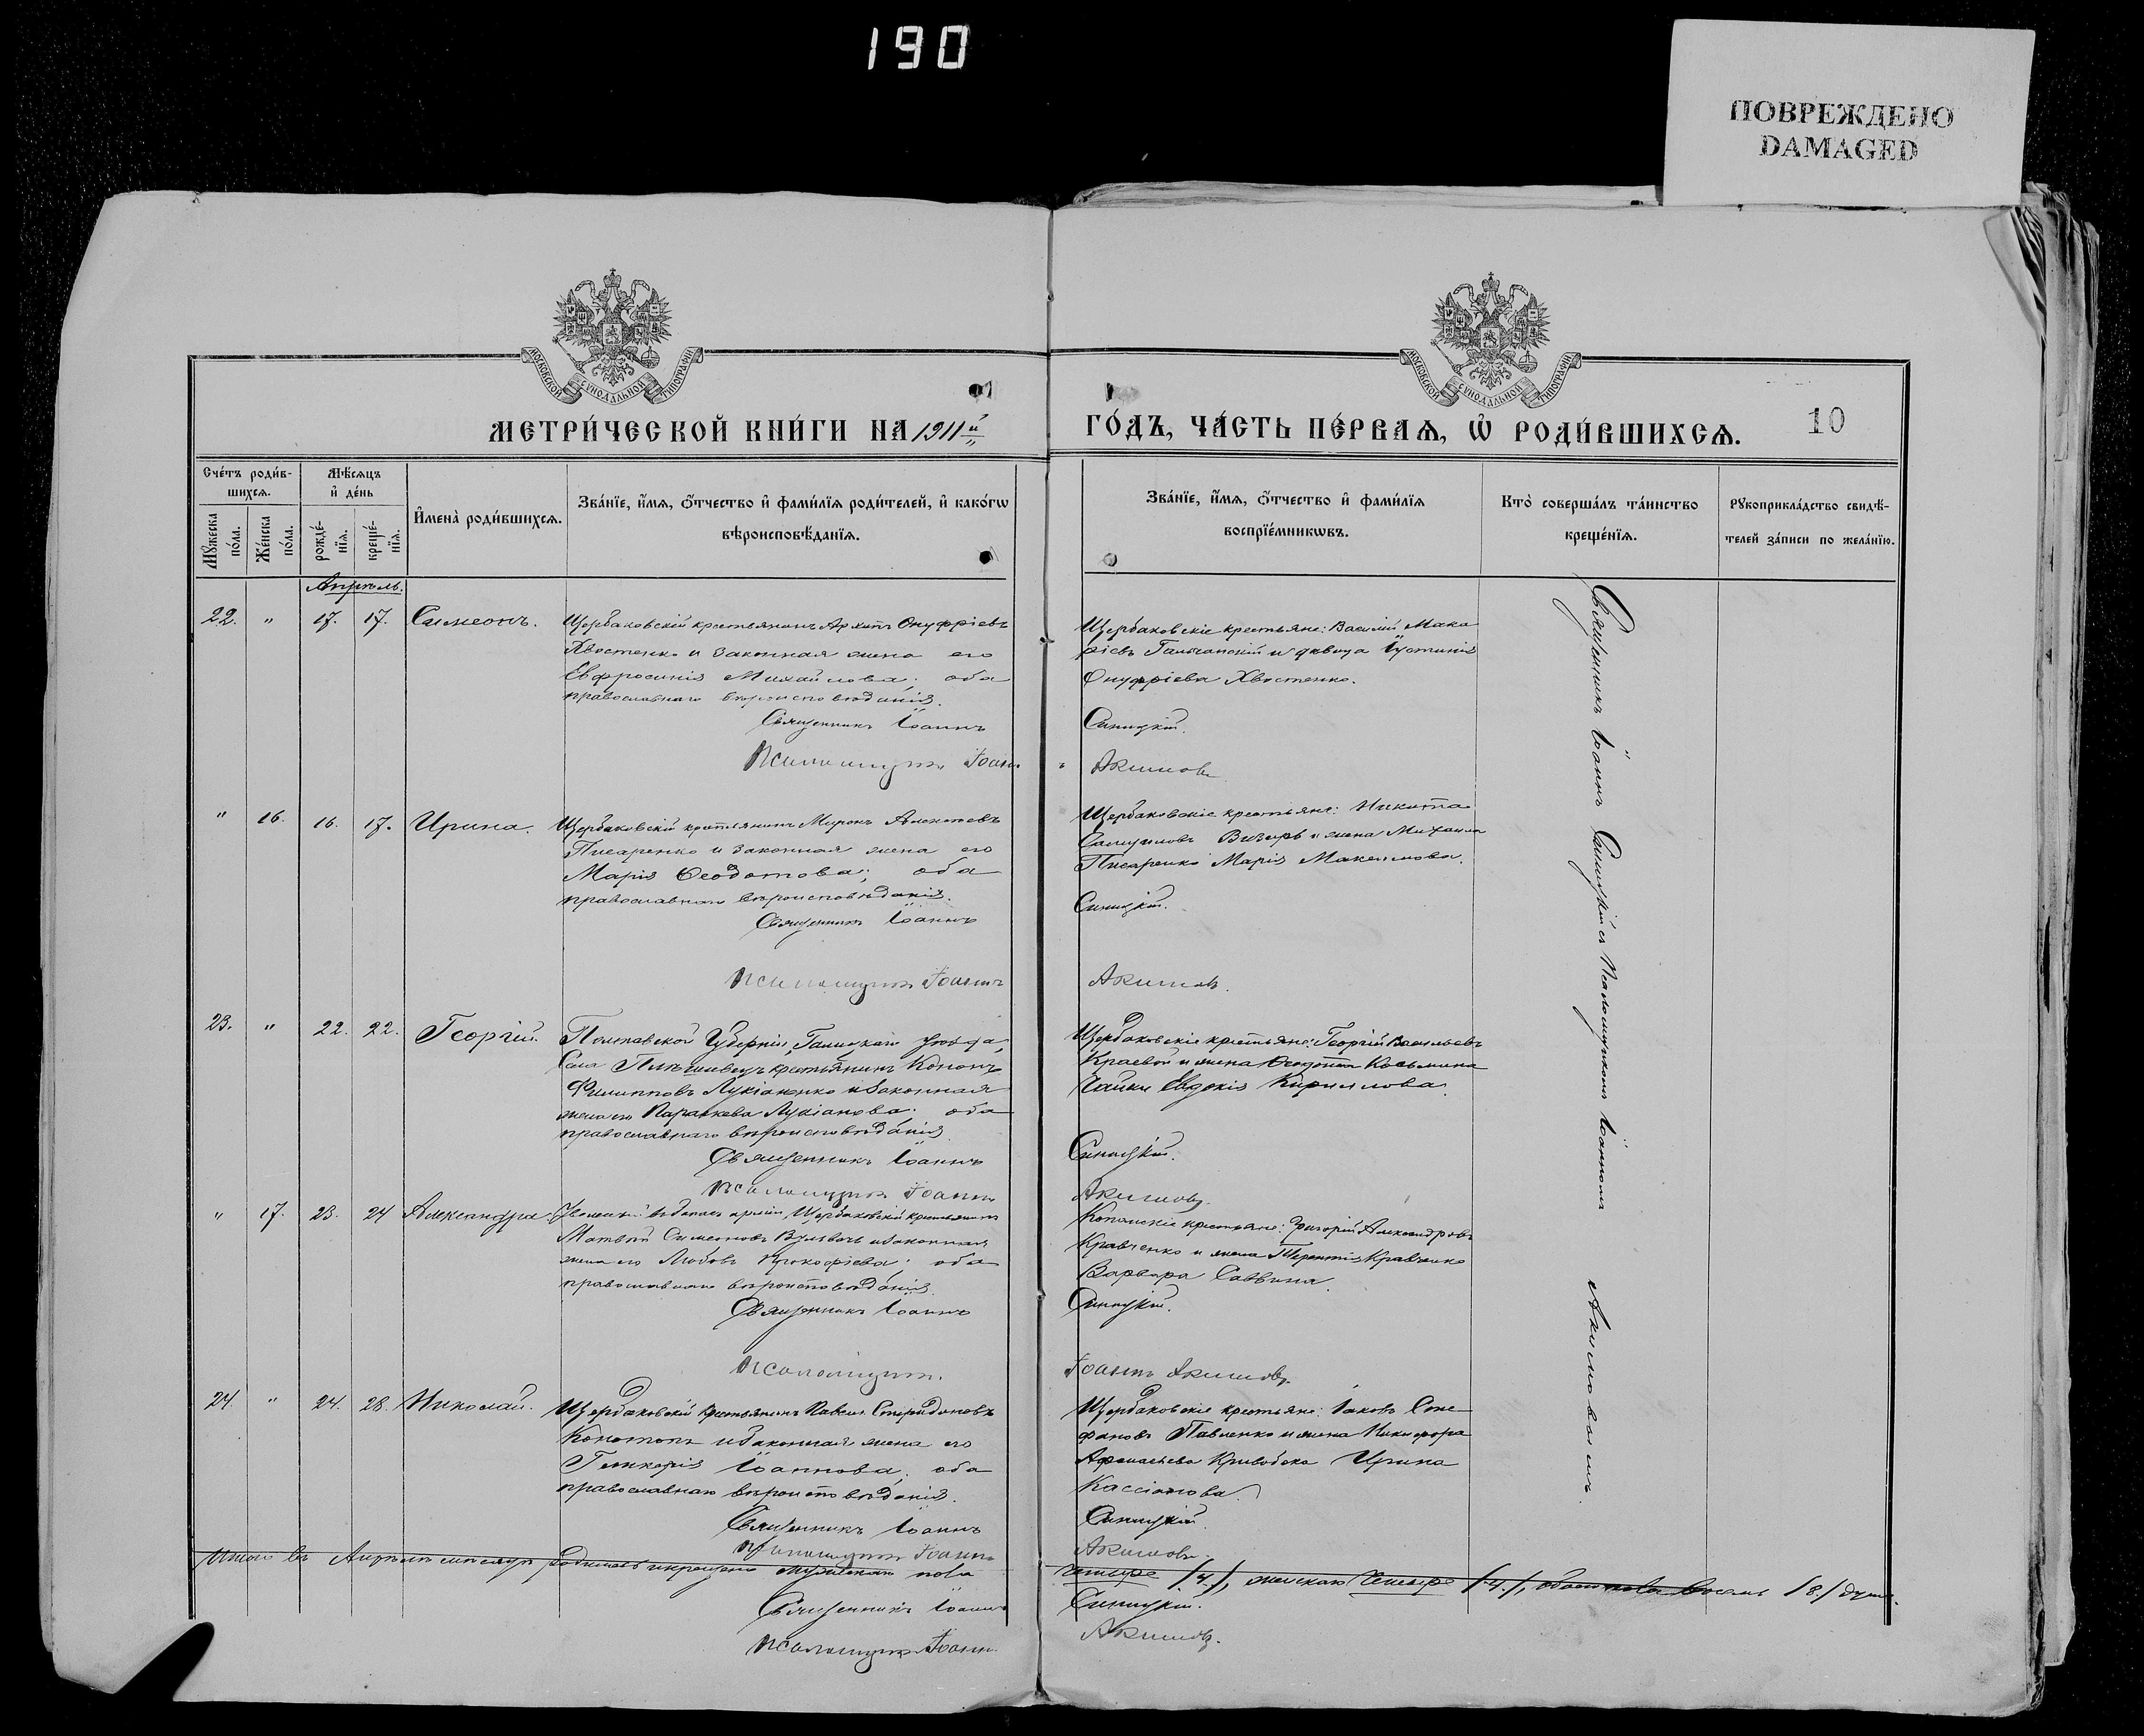 190
ПОВРЕЖДЕНО
DAMAGED
МОСКОВСКОЙ СѴНОДАЛЬНОЙ ТИПОГРАФІИ
МОСКОВСКОЙ СѴНОДАЛЬНОЙ ТИПОГРАФІИ
МЕТРИ́ЧЕСКОЙ КНИ́ГИ НА 1911й
ГО́ДЪ, ЧА́СТЬ ПЕ́РВАѦ, Ѡ҆ РОДИ́ВШИХСѦ.
10
Сче́тъ роди́в-
шихсѧ.
Мѣ́сѧцъ
и҆ де́нь
Мꙋ́жеска
по́ла.
Же́нска
по́ла.
рожде́-
нїѧ.
креще́-
нїѧ.
И҆мена̀ роди́вшихсѧ.
Зва́нїе, и҆́мѧ, ѻ҆́тчество и҆ фами́лїѧ роди́телей, и҆ како́гѡ
вѣроисповѣ́данїѧ.
Зва́нїе, и҆́мѧ, ѻ҆́тчество и҆ фами́лїѧ
воспрїе́мникѡвъ.
Кто̀ соверша́лъ та́инство
креще́нїѧ.
Рꙋкоприкла́дство свидѣ́-
телей за́писи по жела́нїю.
Апрѣль.
22. " 17. 17. Симеонъ.
Щербаковскій крестьянинъ Архипъ Онуфріевъ
Хвостенко и законная жена его
Евфросинія Михайлова; оба
православнаго вѣроисповѣданія.
Священникъ Іоаннъ
Псаломщикъ Іоаннъ
Щербаковскіе крестьяне: Василій Мака
ріевъ и дѣвица Іустинія
Онуфріева Хвостенко.
Синицкій.
Акимовъ
" 16. 16. 17. Ирина.
Щербаковскій крестьянинъ Миронъ Алексѣевъ
Писаренко и законная жена его
Марія Ѳеодотова; оба
православнаго вѣроисповѣданія.
Священникъ Іоаннъ
Псаломщикъ Іоаннъ
Щербаковскіе крестьяне: Никита
Самуиловъ и жена Михаила
Писаренко Марія Максимова.
Синицкій.
Акимовъ.
23. " 22. 22. Георгій.
Полтавской Губерніи, уѣзда,
Села крестьянинъ Кононъ
Филипповъ Лукіаненко и законная
жена его Параскева Лукіанова; оба
православнаго вѣроисповѣданія
Священникъ Іоаннъ
Псаломщикъ Іоаннъ
Щербаковскіе крестьяне: Георгій Васильевъ
Краевой и жена Ѳеодота Косьмина
Чайки Евдокія Кириллова.
Синицкій.
Акимовъ.
" 17. 23. 24 Александра
Уволенный въ запасъ арміи, Щербаковскій крестьянинъ
Матвѣй Симеоновъ и законная
жена его Любовь Прокофіева; оба
православнаго вѣроисповѣданія.
Священникъ Іоаннъ
Псаломщикъ.
Копанскіе крестьяне: Григорій Александровъ
Кравченко и жена Терентія Кравченко
Варвара Саввина.
Синицкій.
Іоаннъ Акимовъ.
24. " 24. 28. Николай.
Щербаковскій крестьянинъ Павелъ Спиридоновъ
Конотопъ и законная жена его
Гликерія Іоаннова; оба
православнаго вѣроисповѣданія.
Священникъ Іоаннъ
Псаломщикъ Іоаннъ
Щербаковскіе крестьяне: Іаковъ Сте
фановъ Павленко и жена Никифора
Аѳанасьева Ирина
Кассіанова.
Синицкій.
Акимовъ.
Священникъ Іоаннъ Синицкій съ Псаломщикомъ Іоанномъ Акимовымъ.
Итого въ Апрѣлѣ мѣсяцѣ родилось и крещено мужескаго пола
четыре /4./, женскаго четыре /4./, обоего пола восемь /8./ душъ.
Священникъ Іоаннъ
Синицкій.
Псаломщикъ Іоаннъ
Акимовъ.